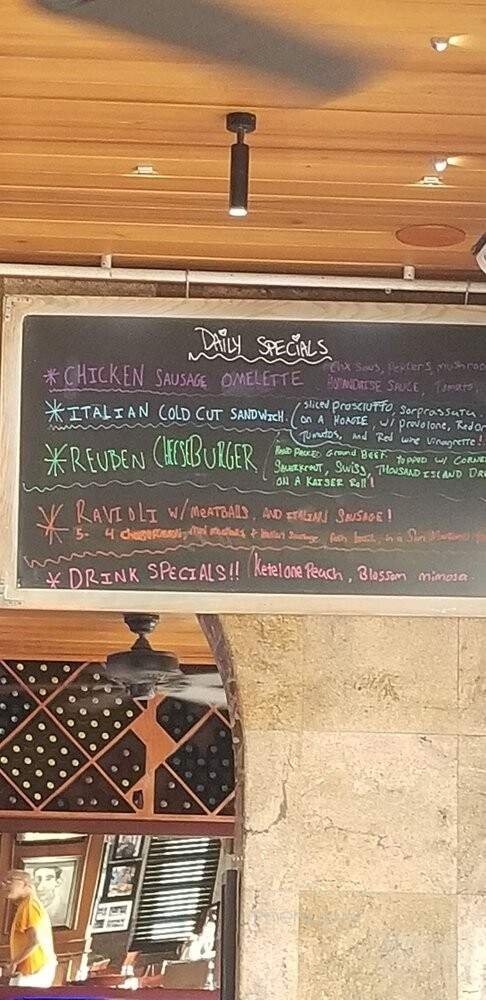 DAiLY SPECiALS
* CHICKEN SAUSAGE OMELETTE
Chx Saus, PEPPERS, mushroo
HOLLANDAISE SAUCE, Tomato,
* ITALIAN COLD CUT SANDWICH
sliced prosciutto, soprassata
ON A HOAGIE, w/ provolone, Red on
Tomatos, and Red wine Vinaigrette!
* REUBEN CHEESEBURGER
HAND PACKED Ground BEEF topped w/ CORNE
SAUERKRAUT, Swiss, THOUSAND ISLAND DRE
ON A KAISER Roll!
* RAVIOLI W/ MEATBALLS AND ITALIAN SAUSAGE!
5- 4 cheese ravioli, mini meatballs + Italian Sausage, fresh basil, in a San
* DRINK SPECIALS!! Ketel one Peach, Blossom mimosa.